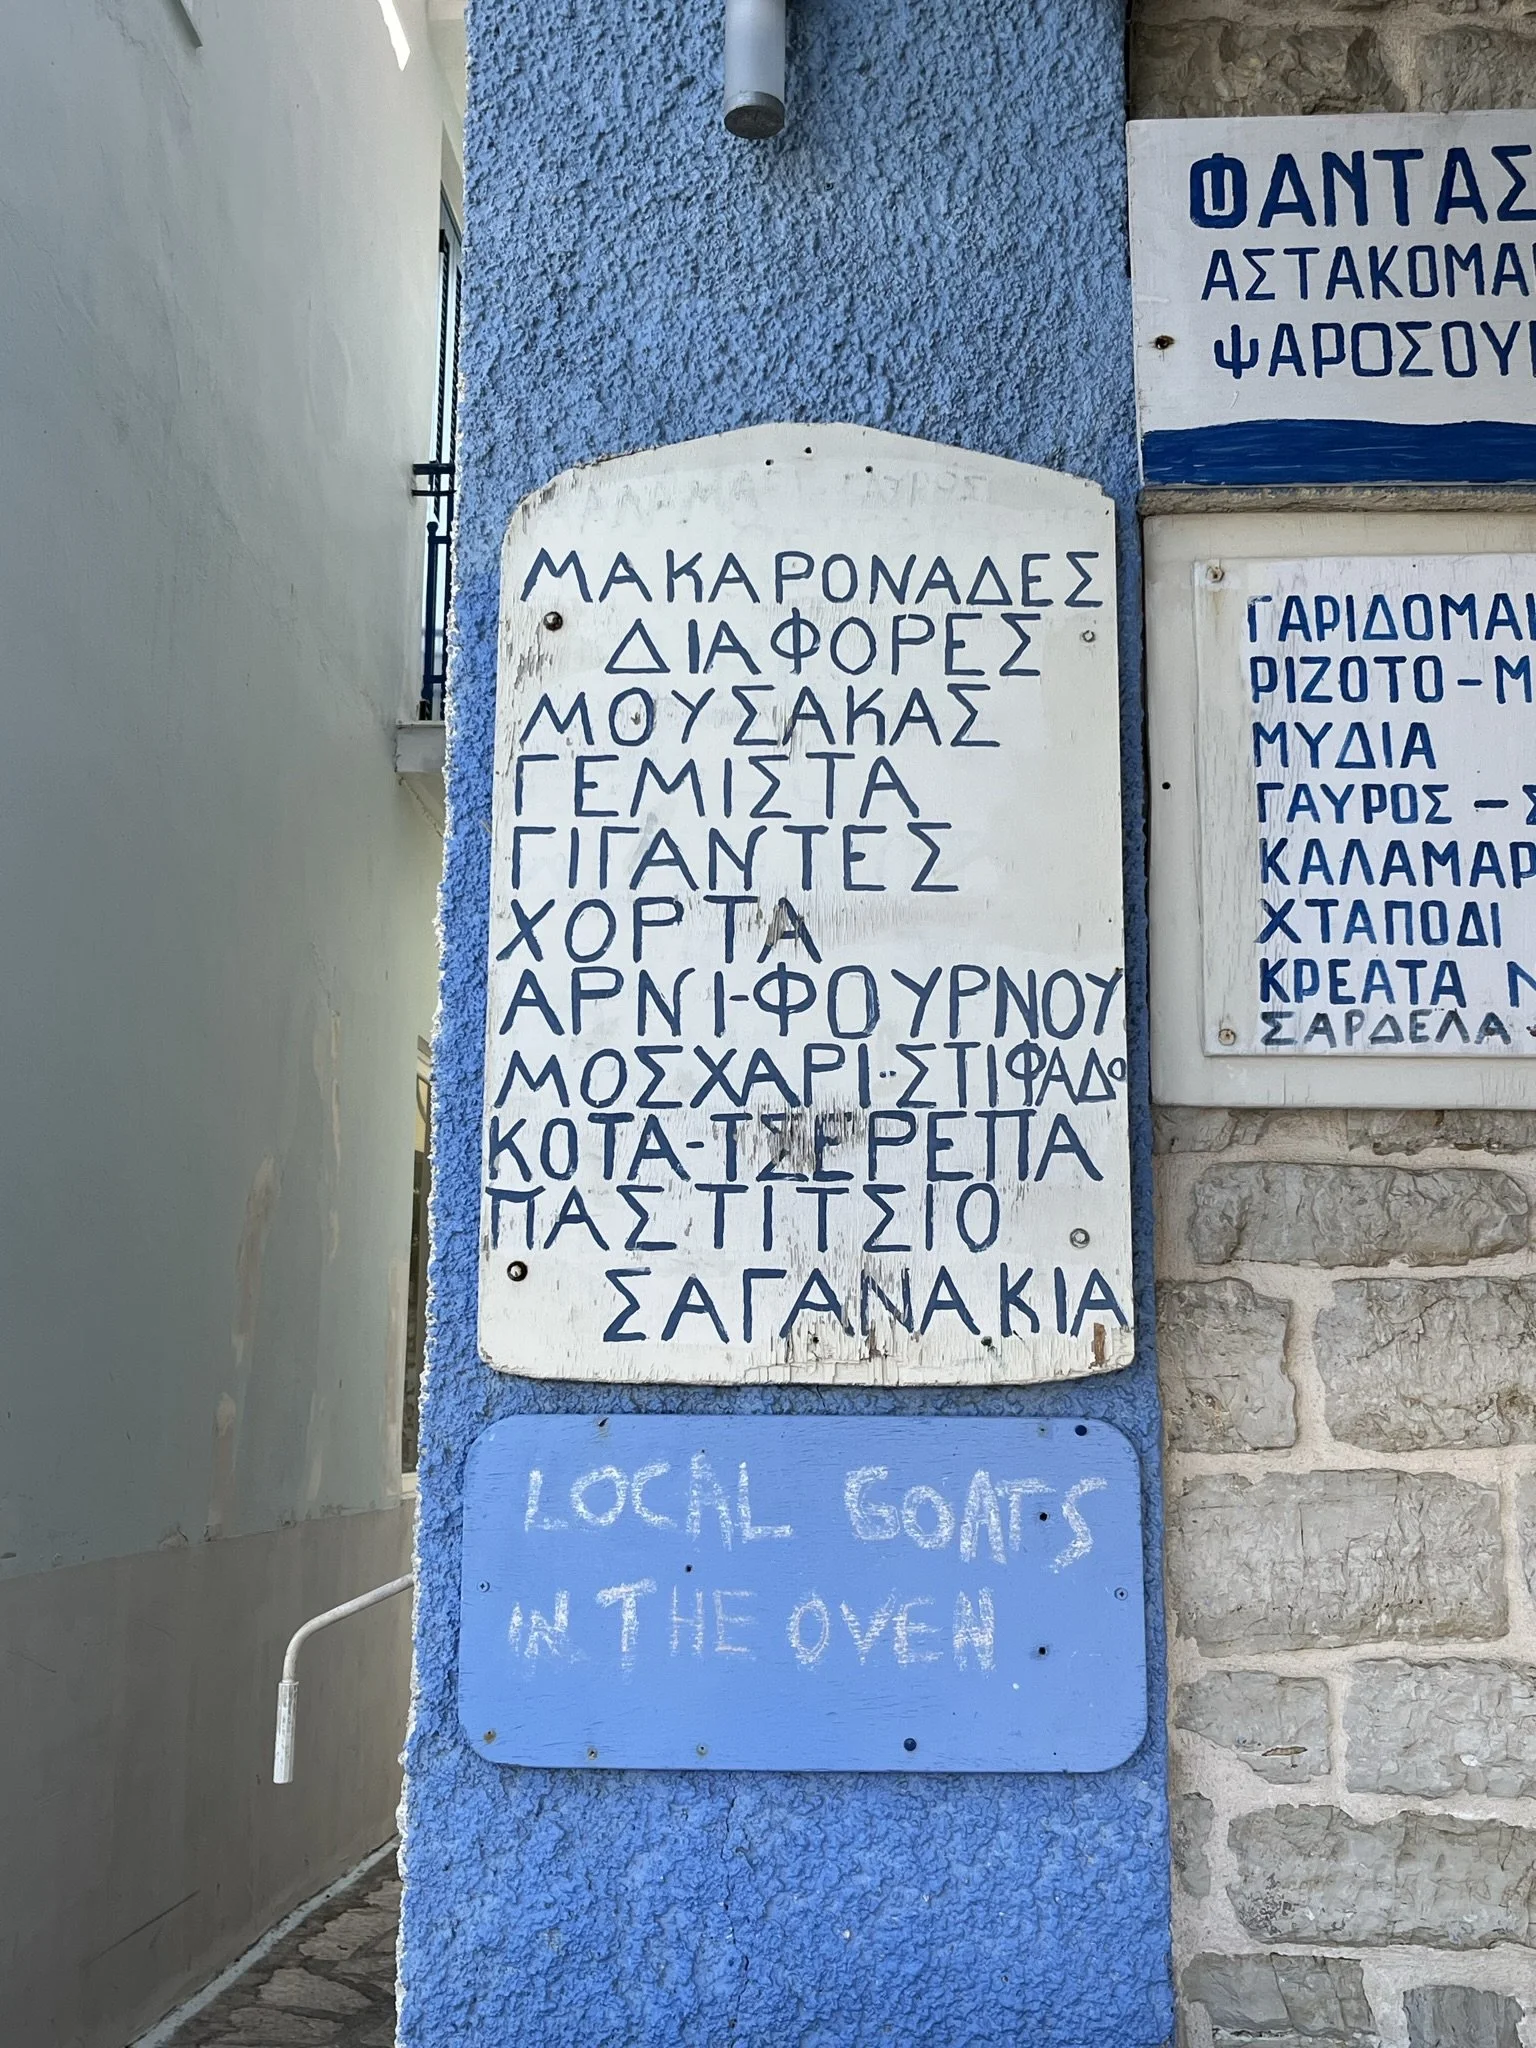 ΜΑΚΑΡΟΝΑΔΕΣ
ΔΙΑΦΟΡΕΣ
ΜΟΥΣΑΚΑΣ
ΓΕΜΙΣΤΑ
ΓΙΓΑΝΤΕΣ
ΧΟΡΤΑ
ΑΡΝΙ-ΦΟΥΡΝΟΥ
ΜΟΣΧΑΡΙ-ΣΤΙΦΑΔΟ
ΚΟΤΑ-ΤΣΕΡΕΠΑ
ΠΑΣΤΙΤΣΙΟ
ΣΑΓΑΝΑΚΙΑ
LOCAL GOATS
IN THE OVEN
ΡΙΖΟΤΟ-
ΜΥΔΙΑ
ΓΑΥΡΟΣ -
ΧΤΑΠΟΔΙ
ΚΡΕΑΤΑ
ΣΑΡΔΕΛΑ